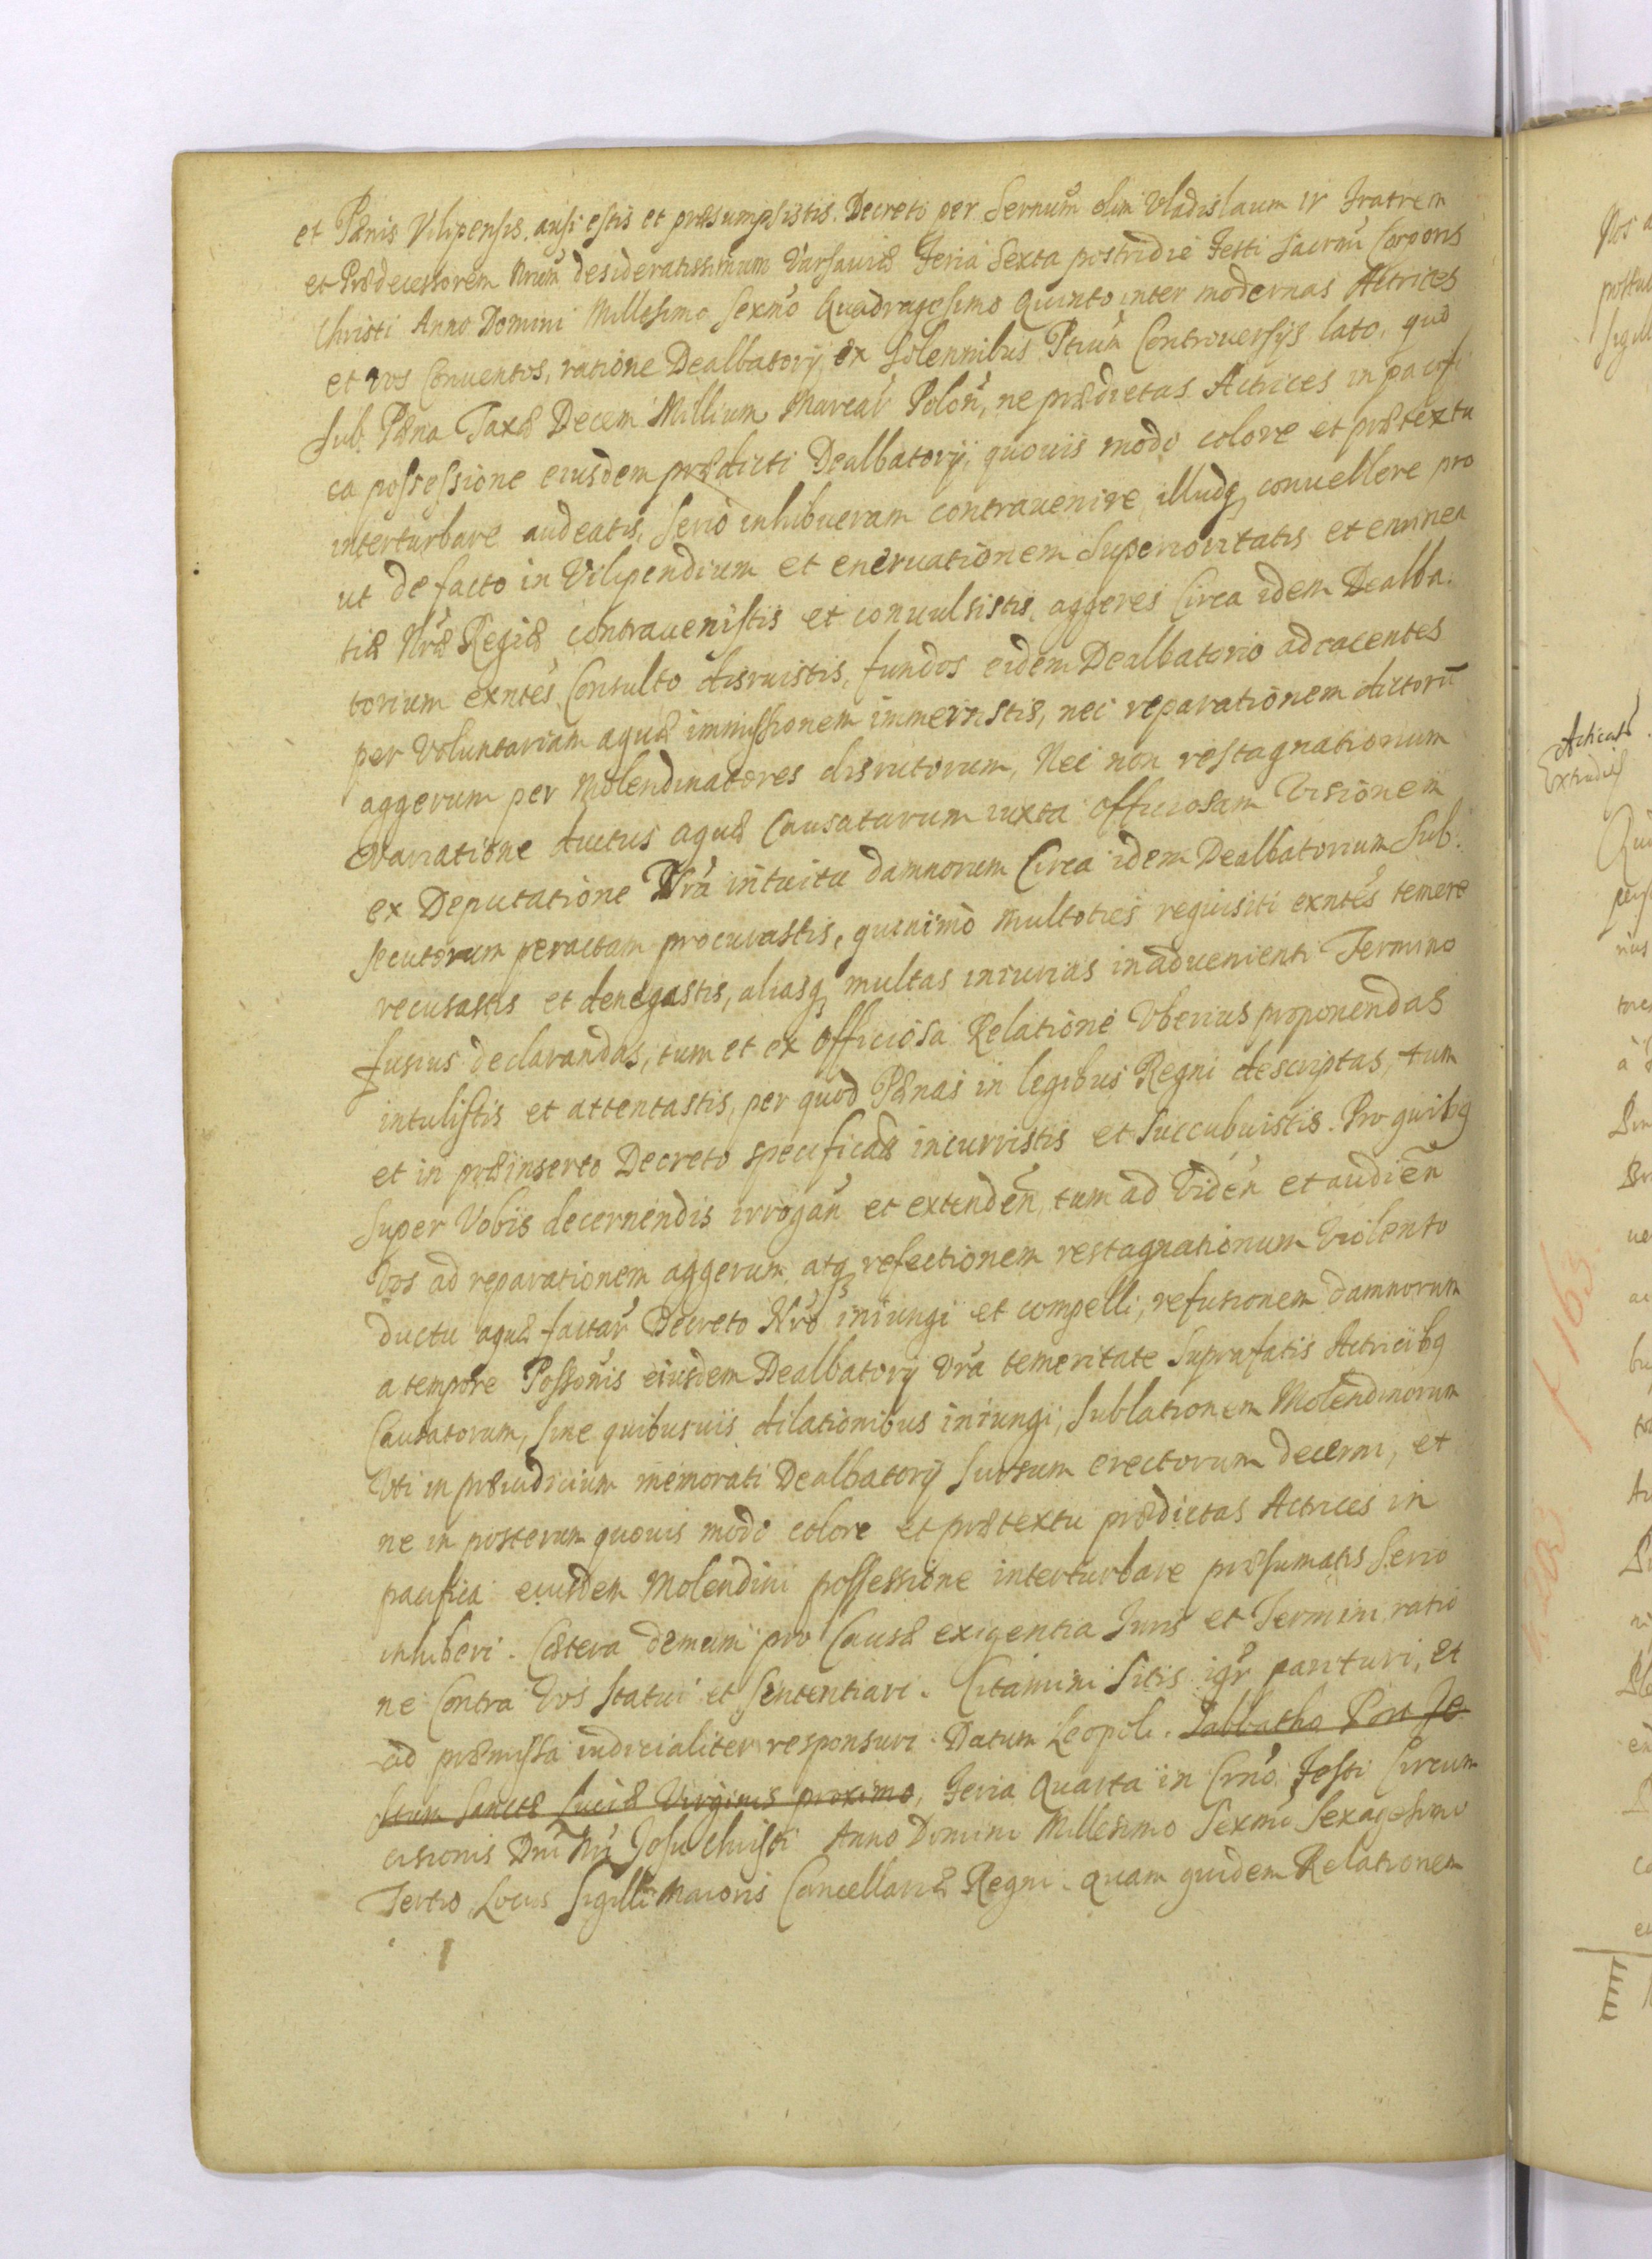 et Pænis Vilipensis, ausi estis et præsumpsistis. Decreto per Sernum olim Vladislaum IV Fratrem
et Prædecessorem Nrum desideratissimum Varsaviæ Feria Sexta postridie Festi Sacrmi Corporis
Christi Anno Domini Millesimo Sexmo Quadragesimo Quinto inter modernas Actrices
et vos Conventos, ratione Dealbatorij ex solennibus Ptium Controversijs lato, quo
sub Pæna Taxæ Decem Millium Marcar Polon, ne prædictas Actrices in pacifi
ca possessione eiusdem prædicti Dealbatorij, quovis modo colore et prætextu
interturbare audeatis, serio inhibueram contravenire illudq convellere pro
ut de facto in Vilipendium et enervationem Superioritatis et eminen
tiæ Nræ Regiæ contravenistis et convulsistis, aggeres Circa idem Dealba
torium exntes Consulto disruistis, fundos eidem Dealbatorio adiacentes
per Voluntariam aquæ immissionem immersistis, nec reparationem dictoru
aggerum per Molendinatores disrutorum, Nec non restagnationum
Variatione ductus aquæ Causatarum iuxta officiosam Visionem
ex Deputatione Nra intuitu damnorum Circa idem Dealbatorium Sub
secutorum peractam procurastis, quinimo Multoties requisiti exntes temere
recusastis et denegastis, aliasq multas iniurias in advenienti Termino
fusius declarandas, tum et ex Officiosa Relatione Vberius proponendas
intulistis et attentastis, per quod Pænas in legibus Regni descriptas, tum
et in præinserto Decreto specificas incurristis et Succubuistis. Pro quibq
super Vobis decernendis irrogan et extenden, tum ad Viden et audien
Vos ad reparationem aggerum atq refectionem restagnationum Violento
ductu aquæ factar Decreto Nro iniungi et compelli, refusionem damnorum
a tempore Possonis eiusdem Dealbatorij Vra temeritate Suprafatis Actricibq
Causatorum, sine quibusvis dilationibus iniungi, Sublationem Molendinorum
Vti in præiudicium memorati Dealbatorij sursum erectorum decerni, et
ne in posterum quovis modo colore et prætextu prædictas Actrices in
pacifica eiusdem Molendini possessione interturbare præsumatis Serio
inhiberi. Cætera demum pro Causæ exigentia Iuris et Termini ratio
ne Contra Vos statui et sententiari. Citamini Sitis igr parituri, et
ad præmissa iudicialiter responsuri. Datum Leopoli. Sabbatho Post Fe
stum Sanctæ Luciæ Virginis proximo, Feria Quarta in Crno Festi Circum
cisionis Dni Nri Iesu Christi Anno Domini Millesimo Sexmo Sexagesimo
Tertio, Locus Sigilli Maioris Cancellariæ Regni. Quam quidem Relationem